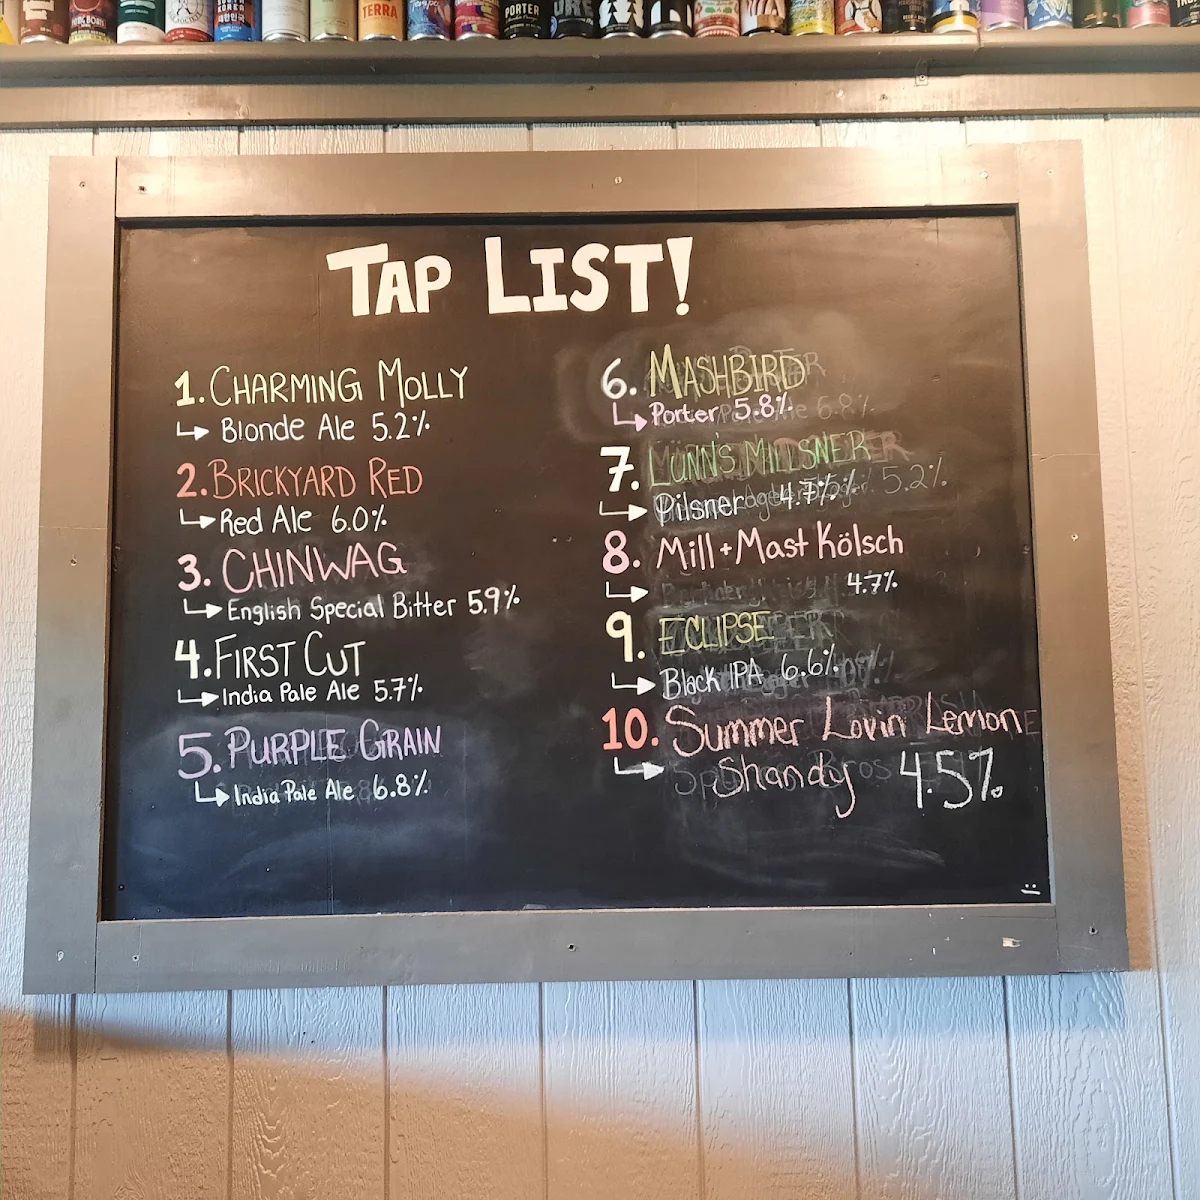 TERRA
PORTER
TAP LIST!
1. CHARMING MOLLY
Blonde Ale 5.2%
2. BRICKYARD RED
Red Ale 6.0%
3. CHINWAG
English Special Bitter 5.9%
4. FIRST CUT
India Pale Ale 5.7%
5. PURPLE GRAIN
India Pale Ale 6.8%
6. MASHBIRD
Porter 5.8%
7. LUNN'S MILLSNER
Pilsner 4.7%
8. Mill + Mast Kölsch
4.7%
9. ECLIPSE
Black IPA 6.6%
10. Summer Lovin Lemon
Shandy 4.5%